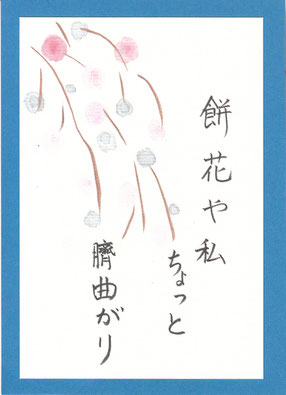 餅花や私
ちょっと
臍曲がり